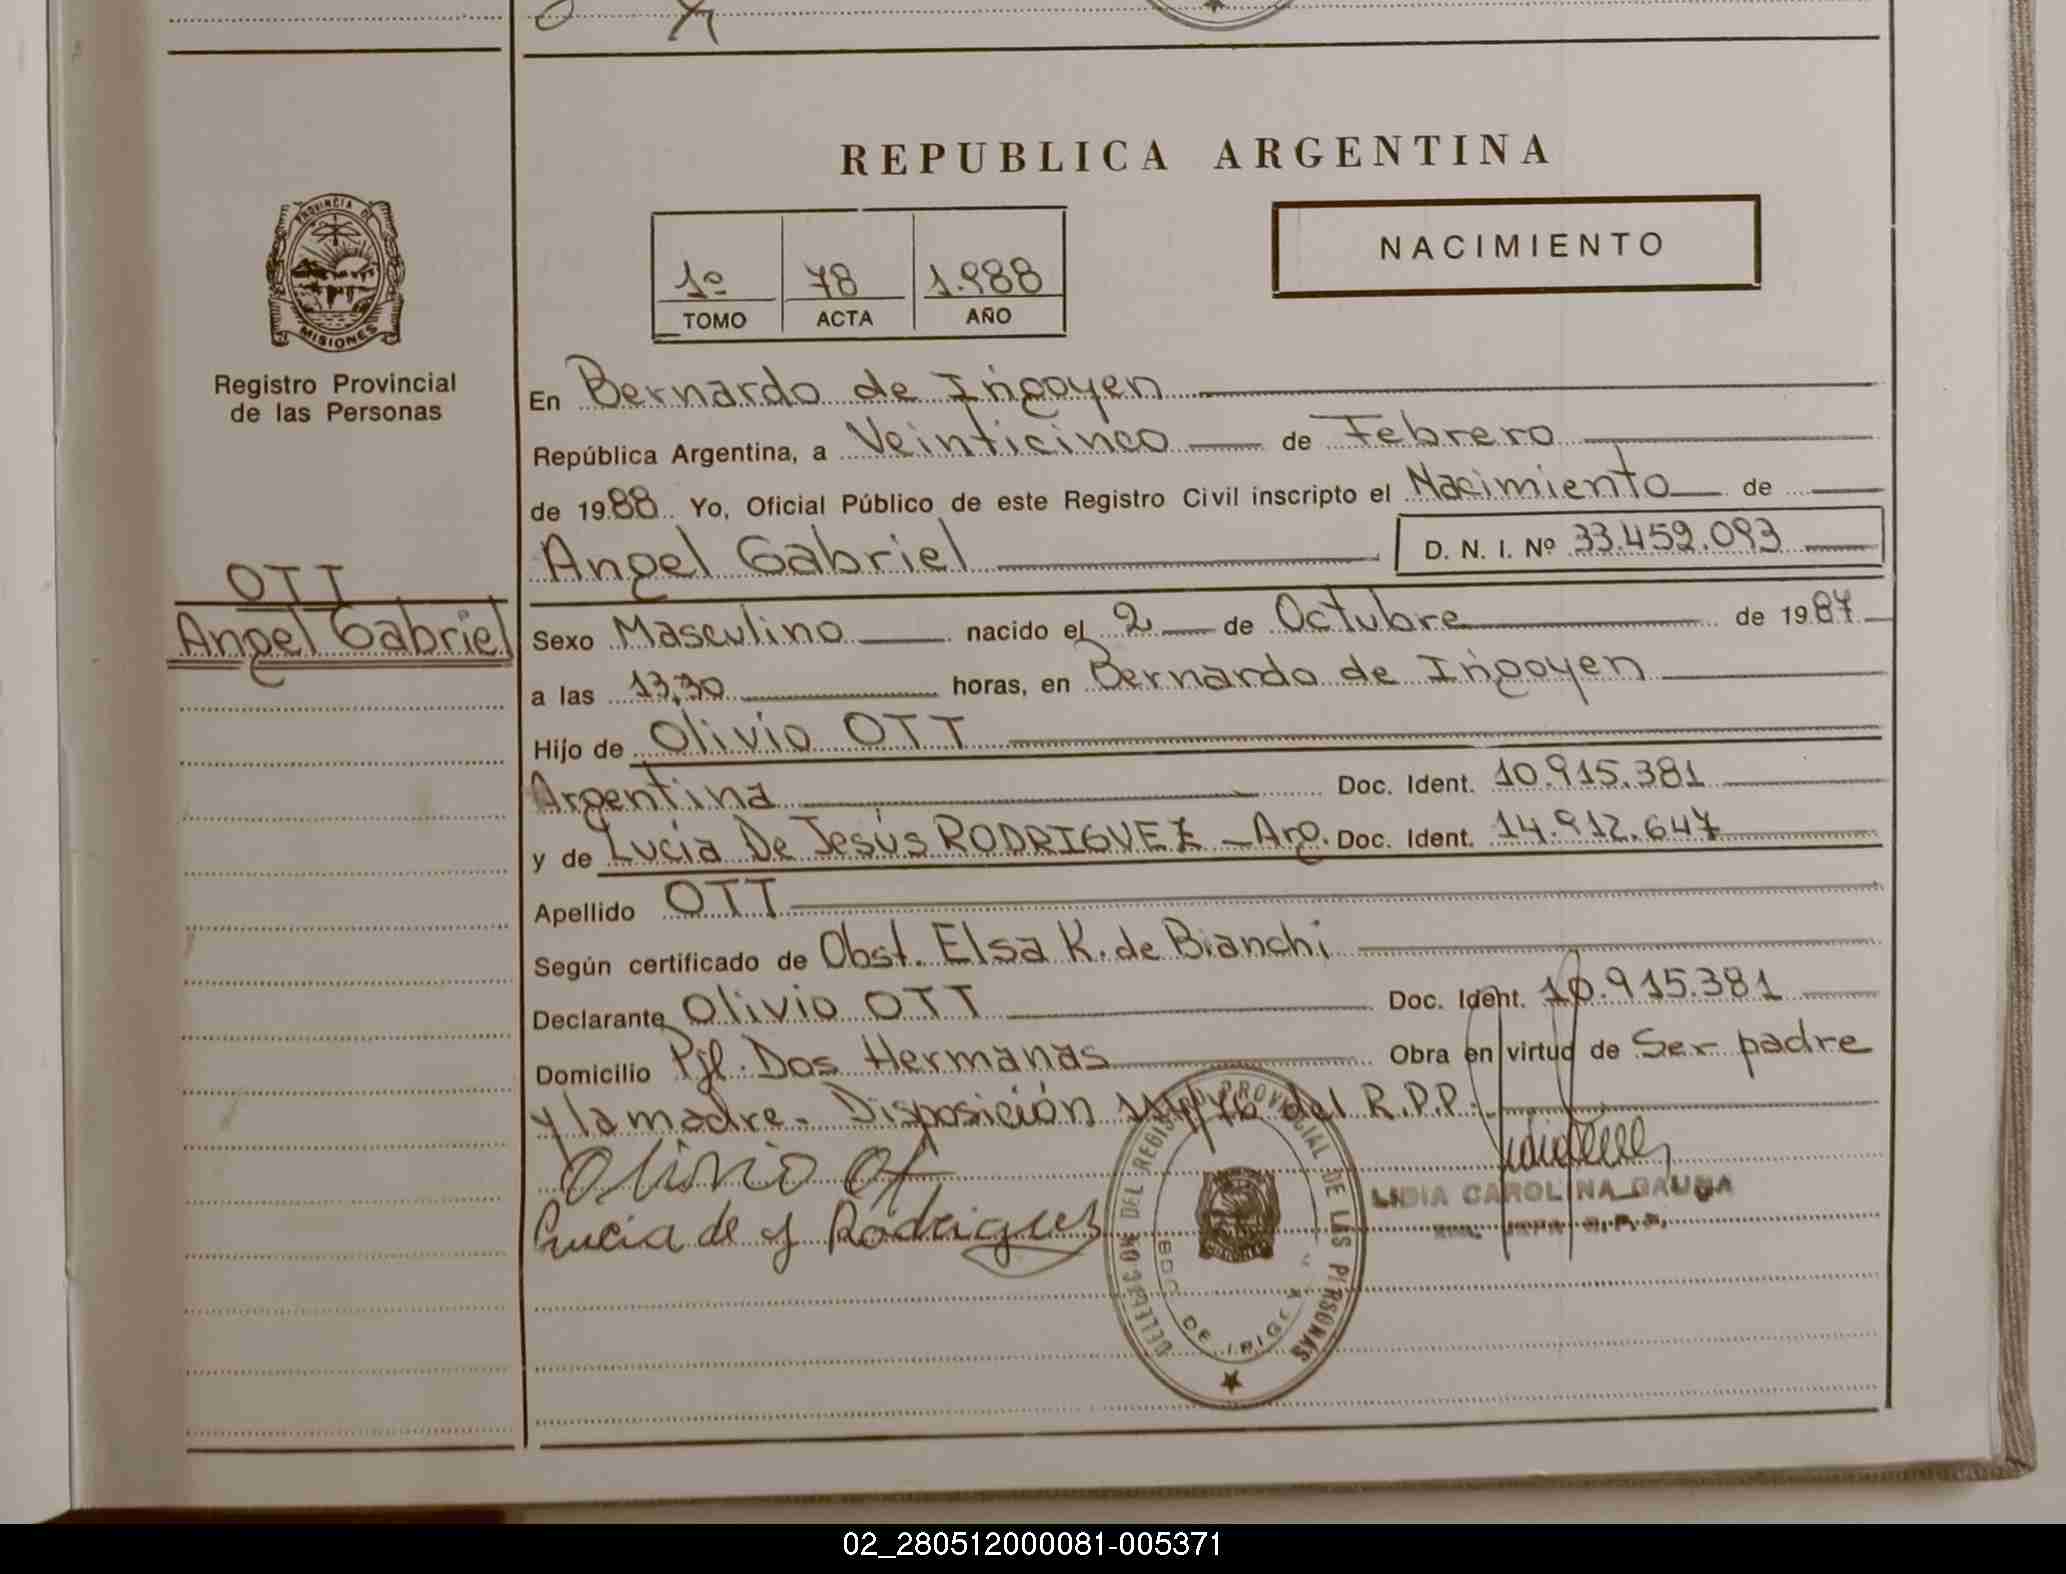 REPUBLICA ARGENTINA
NACIMIENTO
1º 78 1.988
TOMO ACTA AÑO
PROVINCIA DE
MISIONES
Registro Provincial
de las Personas
OTT
Angel Gabriel
En Bernardo de Irigoyen
República Argentina, a Veinticinco de Febrero
de 1988 Yo, Oficial Público de este Registro Civil inscripto el Nacimiento de
Angel Gabriel D. N. I. Nº 33.459.093
Sexo Masculino nacido el 2 de Octubre de 1987
a las 13,30 horas, en Bernardo de Irigoyen
Hijo de Olivio OTT
Argentina Doc. Ident. 10.915.381
y de Lucía De Jesús RODRIGUEZ - Arg. Doc. Ident. 14.912.647
Apellido OTT
Según certificado de Obst. Elsa K. de Bianchi
Declarante Olivio OTT Doc. Ident. 10.915.381
Domicilio Pjl. Dos Hermanas Obra en virtud de Ser padre
y la madre. Disposición 114/76 del R.P.P.
Olivio Ott
Lucia de J Rodriguez
LIDIA CAROLINA GAUNA
DELEGACION DEL REGISTRO PROVINCIAL DE LAS PERSONAS
BDO. DE IRIGOYEN
02_280512000081-005371